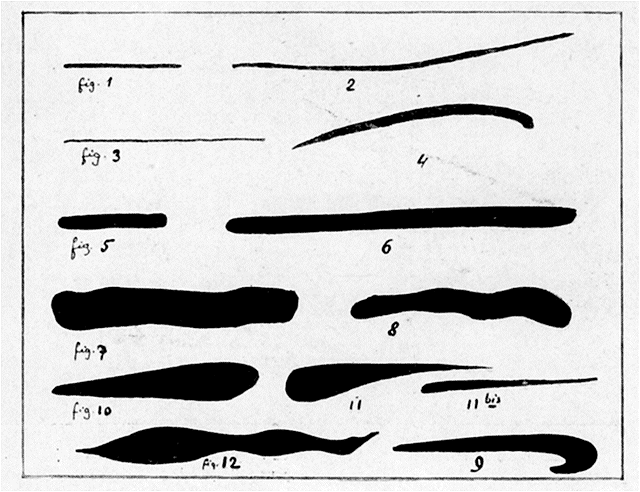 fig. 1
2
fig. 3
4
fig. 5
6
fig. 7
8
fig. 10
11
11 bis
fig. 12
9